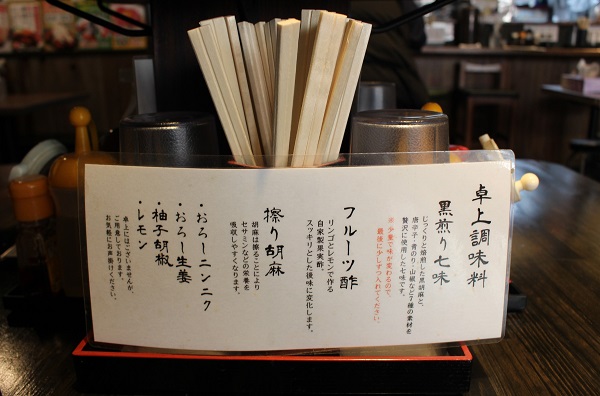 卓上調味料
黒煎り七味
じっくりと焙煎した黒胡麻と、
唐辛子・青のり・山椒など7種の素材を
贅沢に使用した七味です。
※少量で味が変わるので、
最後に少しずつ入れてください。
フルーツ酢
リンゴとレモンで作る
自家製果実酢。
スッキリとした後味に変化します。
擦り胡麻
胡麻は擦ることにより
セサミンなどの栄養を
吸収しやすくなります。
・おろしニンニク
・おろし生姜
・柚子胡椒
・レモン
卓上にはございませんが、
ご用意しております。
お気軽にお声掛けください。